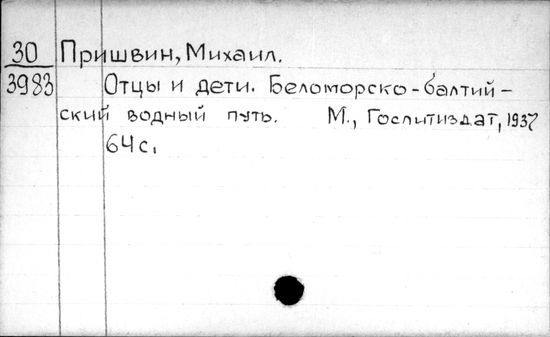 30 Пришвин, Михаил.
3983 Отцы и дети. Беломорско-балтий-
ский водный путь. М., Гослитиздат, 1937
64 с.